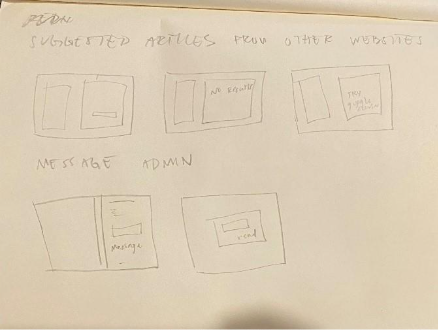 SUGGESTED ARTICLES FROM OTHER WEBSITES
NO RESULTS
TRY
google
MESSAGE ADMIN
message
send